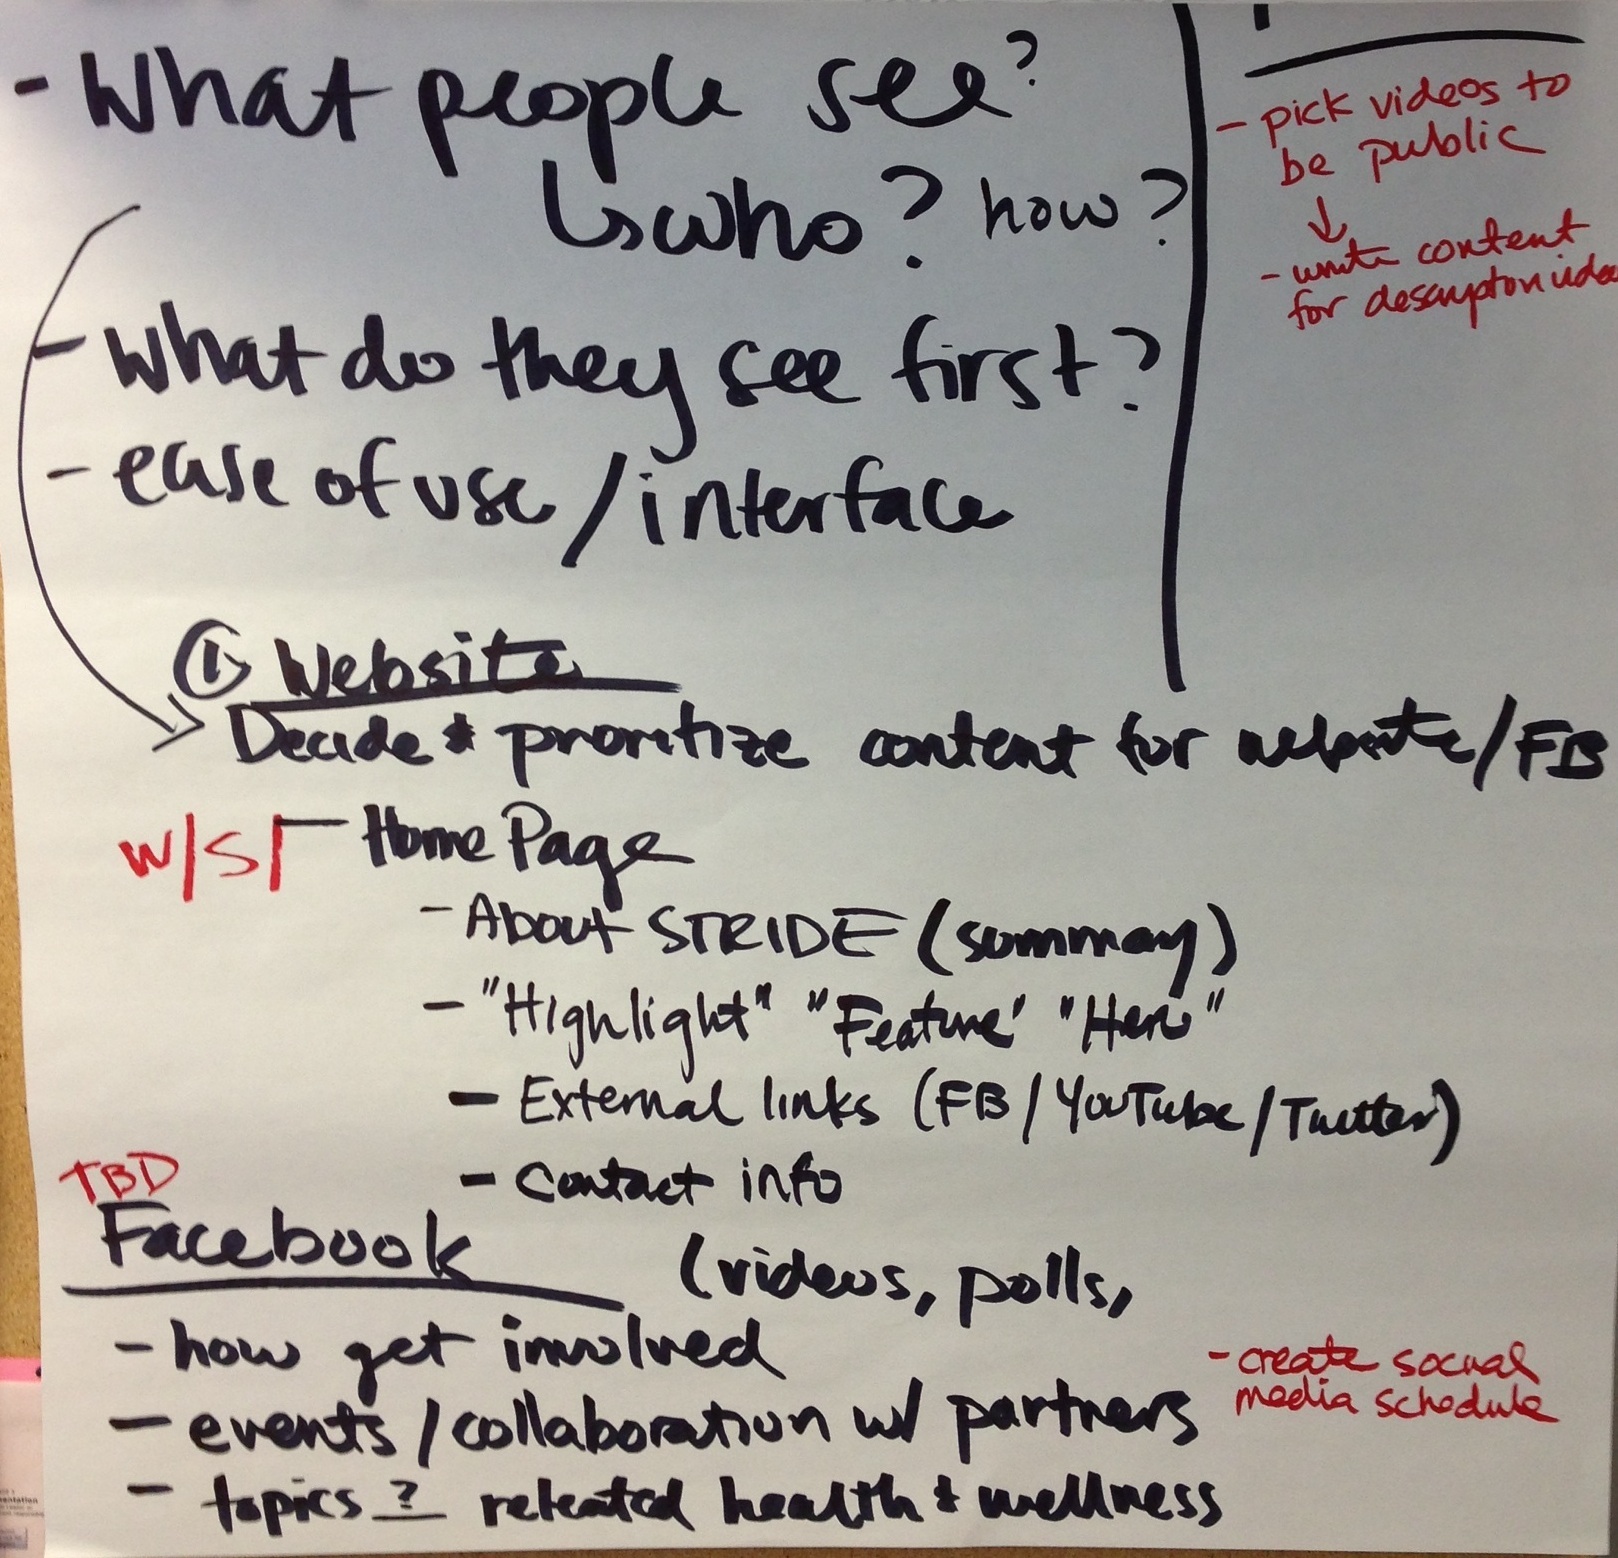 - What people see?
↳ who? how?
- What do they see first?
- ease of use / interface
① Website
Decide + prioritize content for website/FB
W/S/ - Home Page
- About STRIDE (summary)
- "Highlight" "Feature" "Hero"
- External links (FB/YouTube/Twitter)
- Contact info
TBD
Facebook (videos, polls,
- how get involved
- events / collaboration w/ partners
- topics ? releated health + wellness
- pick videos to
be public
↓
- write content
for descripton video
- create social
media schedule